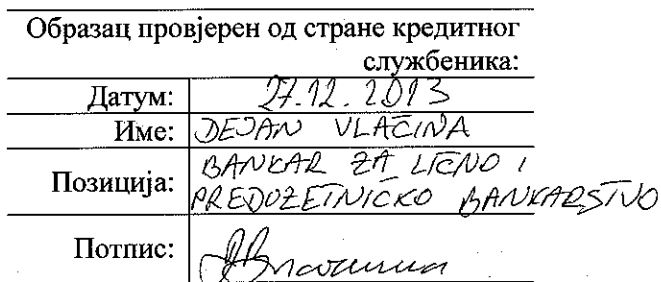 Образац провјерен од стране кредитног
службеника:
Датум: 27.12.2013
Име: DEJAN VLAČINA
Позиција: BANKAR ZA LIČNO I
PREDUZETNIČKO BANKARSTVO
Потпис: